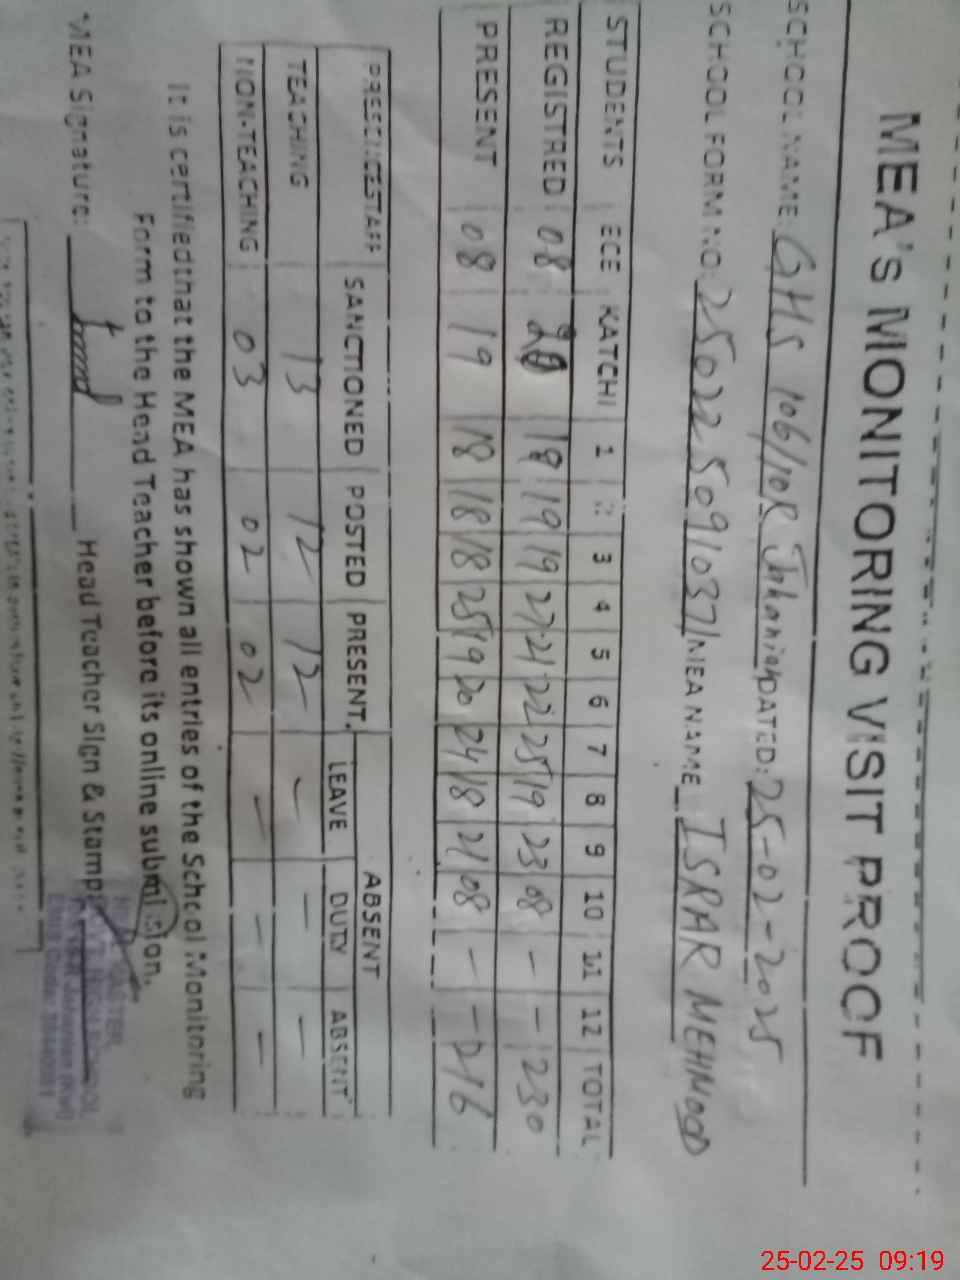 MEA'S MONITORING VISIT PROOF
SCHOOL NAME: GHS 106/10R Jahanian DATED: 25-02-2025
SCHOOL FORM NO: 250225091037 MEA NAME ISRAR MEHMOOD
STUDENTS ECE KATCHI 1 2 3 4 5 6 7 8 9 10 11 12 TOTAL
REGISTRED 08 20 19 19 19 27 21 22 25 19 23 08 - - 230
PRESENT 08 19 18 18 18 25 19 20 24 18 21 08 - - 216
PRESENCE STAFF SANCTIONED POSTED PRESENT ABSENT
LEAVE DUTY ABSENT
TEACHING 13 12 12 - - -
NON-TEACHING 03 02 02 - - -
It is certified that the MEA has shown all entries of the School Monitoring
Form to the Head Teacher before its online submission.
MEA Signature: Head Teacher Sign & Stamp
25-02-25 09:19